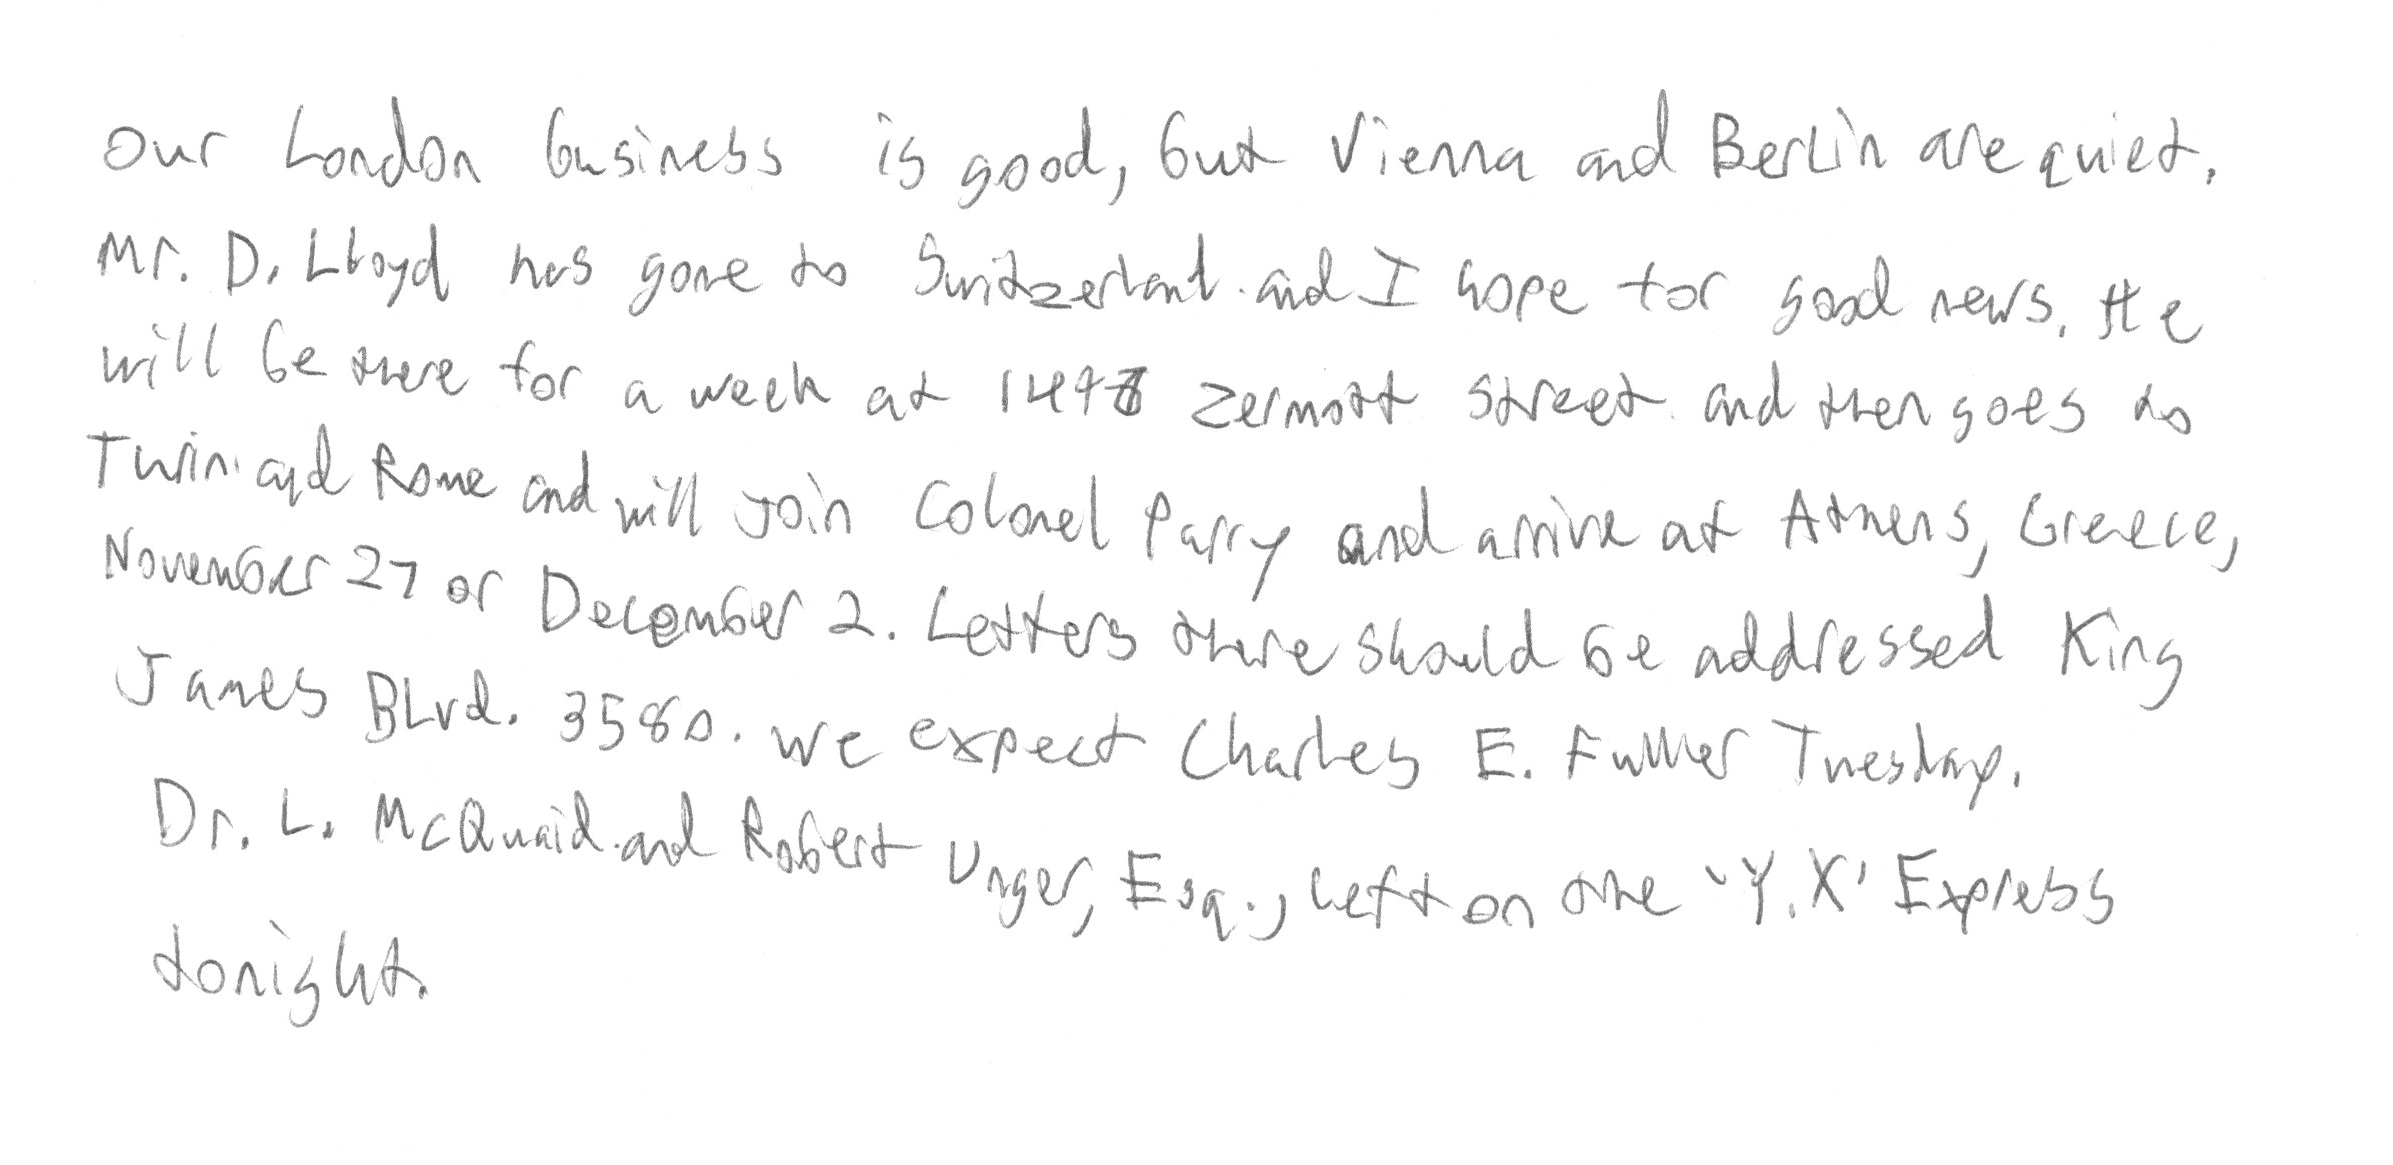 Our London business is good, but Vienna and Berlin are quiet.
Mr. D. Lloyd has gone to Switzerland and I hope for good news. He
will be there for a week at 1496 Zermott Street and then goes to
Turin and Rome and will join Colonel Parry and arrive at Athens, Greece,
November 27 or December 2. Letters there should be addressed King
James Blvd. 3580. We expect Charles E. Fuller Tuesday.
Dr. L. McQuaid and Robert Unger, Esq., left on the 'Y.X' Express
tonight.